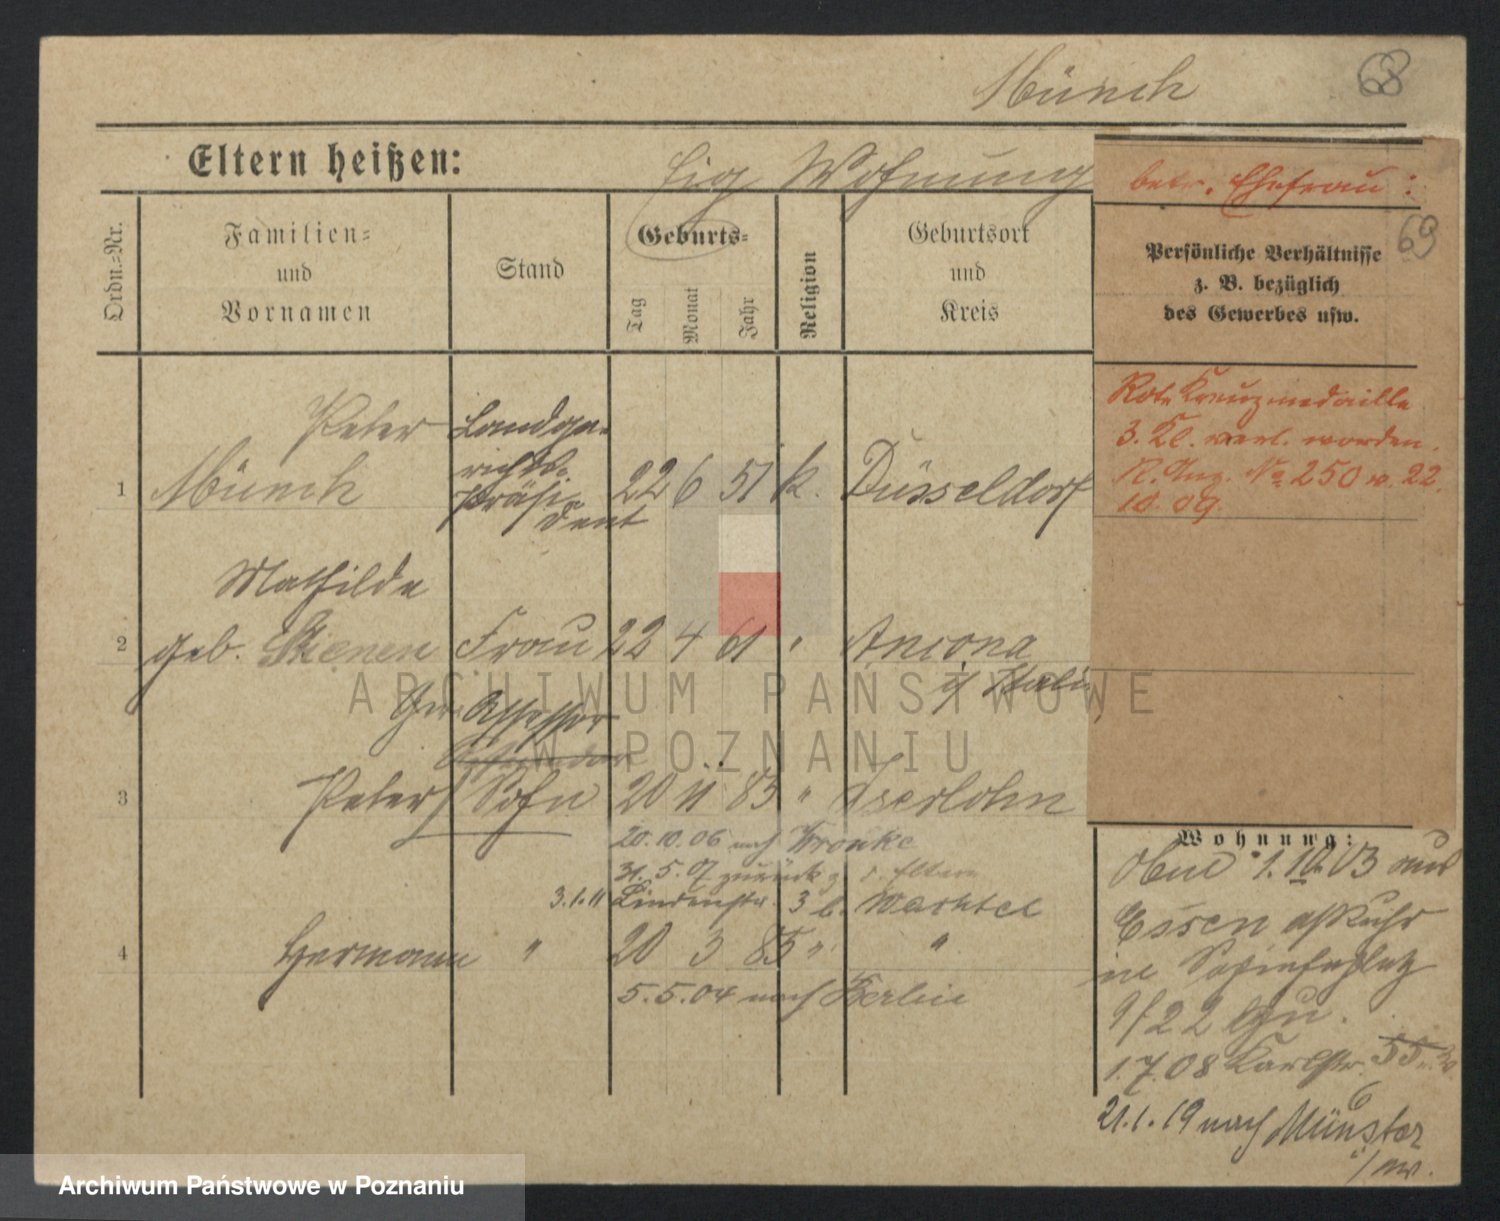 Münch
68
Eltern heißen:
Eig Wohnung
betr. Ehefrau:
69
Ordn.-Nr.
Familien-
und
Vornamen
Stand
Geburts-
Tag
Monat
Jahr
Religion
Geburtsort
und
Kreis
Persönliche Verhältnisse
z. B. bezüglich
des Gewerbes usw.
Rote Kreuzmedaille
3. Kl. verl. worden.
R. Anz. No 250 v. 22.
10. 09.
Peter Landge-
richts-
1 Münch präsi- 22 6 51 k. Düsseldorf
dent
Mathilde
2 geb. Frau 22 4 61 " Ancona
i/ Itali
Ger. Assessor
3 Peter Sohn 20 11 83 " Iserlohn
20.10.06 nach Wronke
31.5.07 zurück z. d. Eltern
3.1.11 Lindenstr. 3 b. Wachtel
4 Hermann " 20 3 85 " "
5.5.04 nach Berlin
Wohnung:
1.10.03 aus
Essen a/Ruhr
in
9/22
1.7.08 Karlstr. 55
6
21.1.19 nach Münster
i/ W.
ARCHIWUM PAŃSTWOWE
W POZNANIU
Archiwum Państwowe w Poznaniu